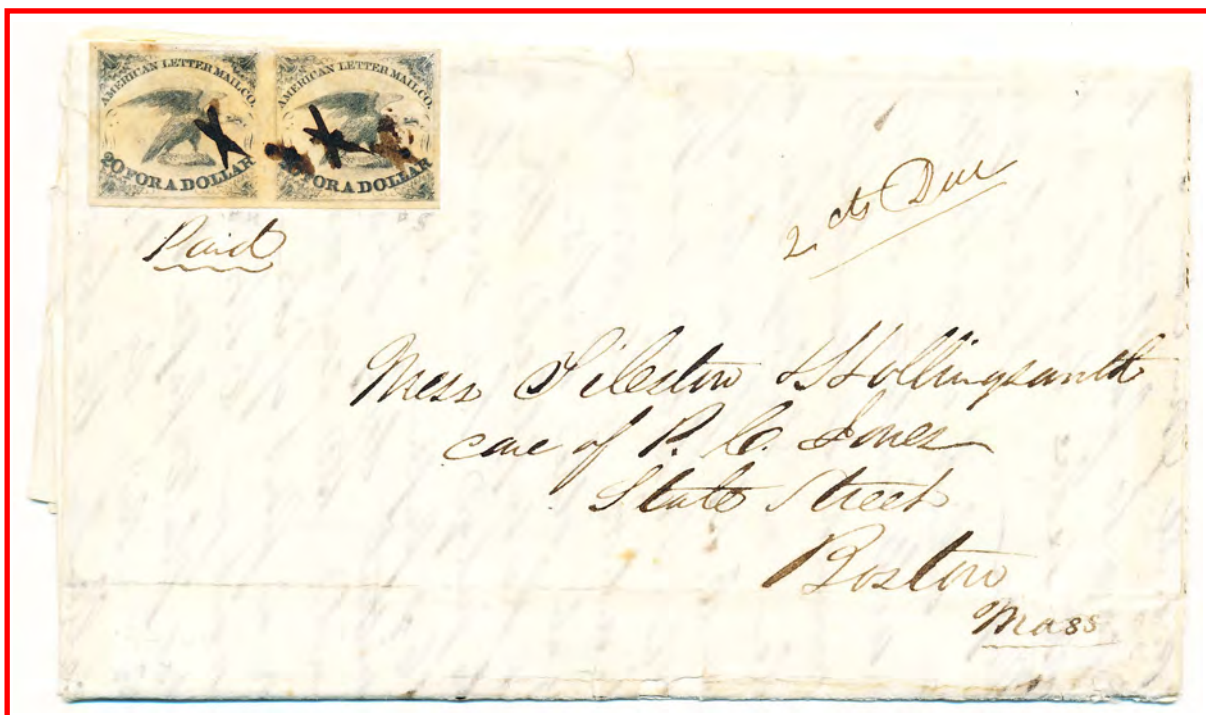 AMERICAN LETTER MAIL CO.
20 FOR A DOLLAR
AMERICAN LETTER MAIL CO.
20 FOR A DOLLAR
Paid
2 cts Due
Mess Tileston & Hollingsworth
care of P. C. Jones
State Street
Boston
Mass